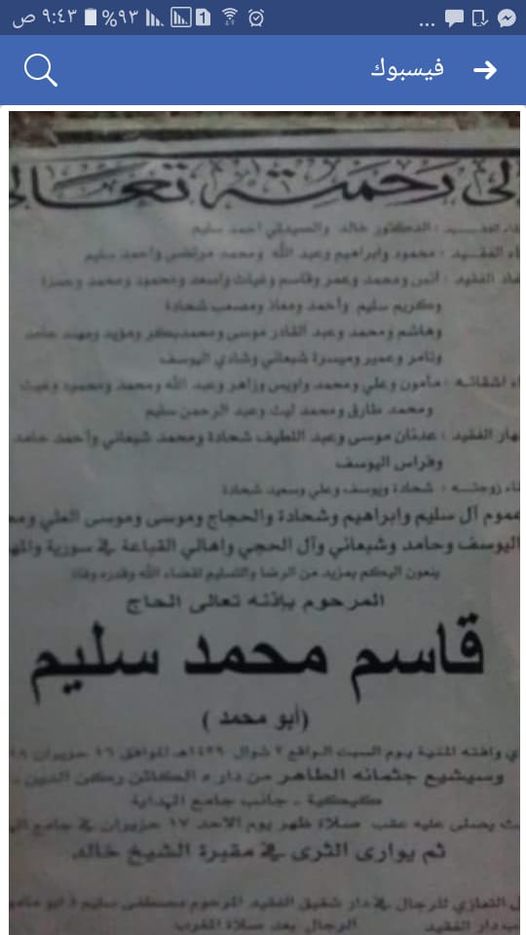 ٩:٤٣ ص ٩٣%
فيسبوك
لى رحمته تعالى
الدكتور خالد والصيدلي أحمد سليم
الفقيد : محمود وابراهيم وعبد الله ومحمد مرتضى واحمد سليم
الفقيد : أنس ومحمد وعمر وقاسم وغياث واسعد ومحمود ومحمد وحمزة
وكريم سليم وأحمد ومعاذ ومصعب شحادة
وهاشم ومحمد وعبد القادر موسى ومحمدبكر ومؤيد ومهند حامد
وتامر وعمير وميسرة شبعاني وشادي اليوسف
مأمون وعلي ومحمد واويس وزاهر وعبد الله ومحمد ومحمود وغيث
ومحمد طارق ومحمد ليث وعبد الرحمن سليم
هار الفقيد : عدنان موسى وعبد اللطيف شحادة ومحمد شبعاني وأحمد حامد
وفراس اليوسف
زوجته : شحادة ويوسف وعلي وسعيد شحادة
عموم آل سليم وابراهيم وشحادة والحجاج وموسى وموسى العلي
اليوسف وحامد وشبعاني وآل الحجي واهالي القباعة في سورية
ينعون اليكم بمزيد من الرضا والتسليم لقضاء الله وقدره وفاة
المرحوم بإذنه تعالى الحاج
قاسم محمد سليم
(أبو محمد)
ي وافته المنية يوم السبت الواقع ٢ شوال ١٤٣٩هـ الموافق ١٦ حزيران
وسيشيع جثمانه الطاهر من داره الكائن ركن الدين
كيكية - جانب جامع الهداية
يصلى عليه عقب صلاة ظهر يوم الاحد ١٧ حزيران في جامع
ثم يوارى الثرى في مقبرة الشيخ خالد
التعازي للرجال في دار شقيق الفقيد المرحوم مصطفى سليم
دار الفقيد الرجال بعد صلاة المغرب